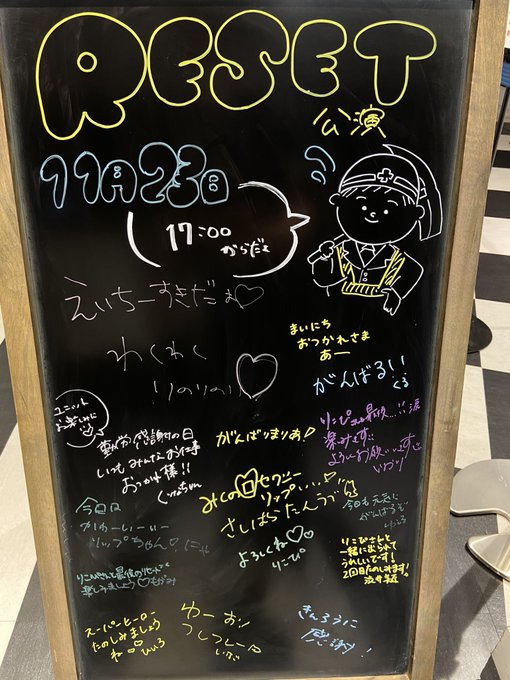 RESET
公演
11月23日
17:00
からだょ
えいちーすきだょ♡
わくわく
りのりのい♡
まいにち
おつかれさま
あー
がんばるい
くる
ユニット
お楽しみに
勤労感謝の日
いつもみんなお仕事
おつかれ様!!
くぅなちゃん
がんばりまりあ!
りこぴ最後...!!涙
楽みです
よろしくお願いします
いおり
みくの口セクシー
リップ...♡
さしばらたんうぶ
今日は
かわーいーぃー
リップちゃん♡
今日も元気に
がんばるぞ
よろしくね♡
りこぴ
りこぴさんと最後のリセット
楽しみましょう♡もがみ
りこぴさんと
一緒に出られて
うれしいです!
2回目たのしみます!
スーパーヒーロー
たのしみましょう
ね♡ひいろ
ゆーおん
フレフレー
いちご
きんろうに
感謝!